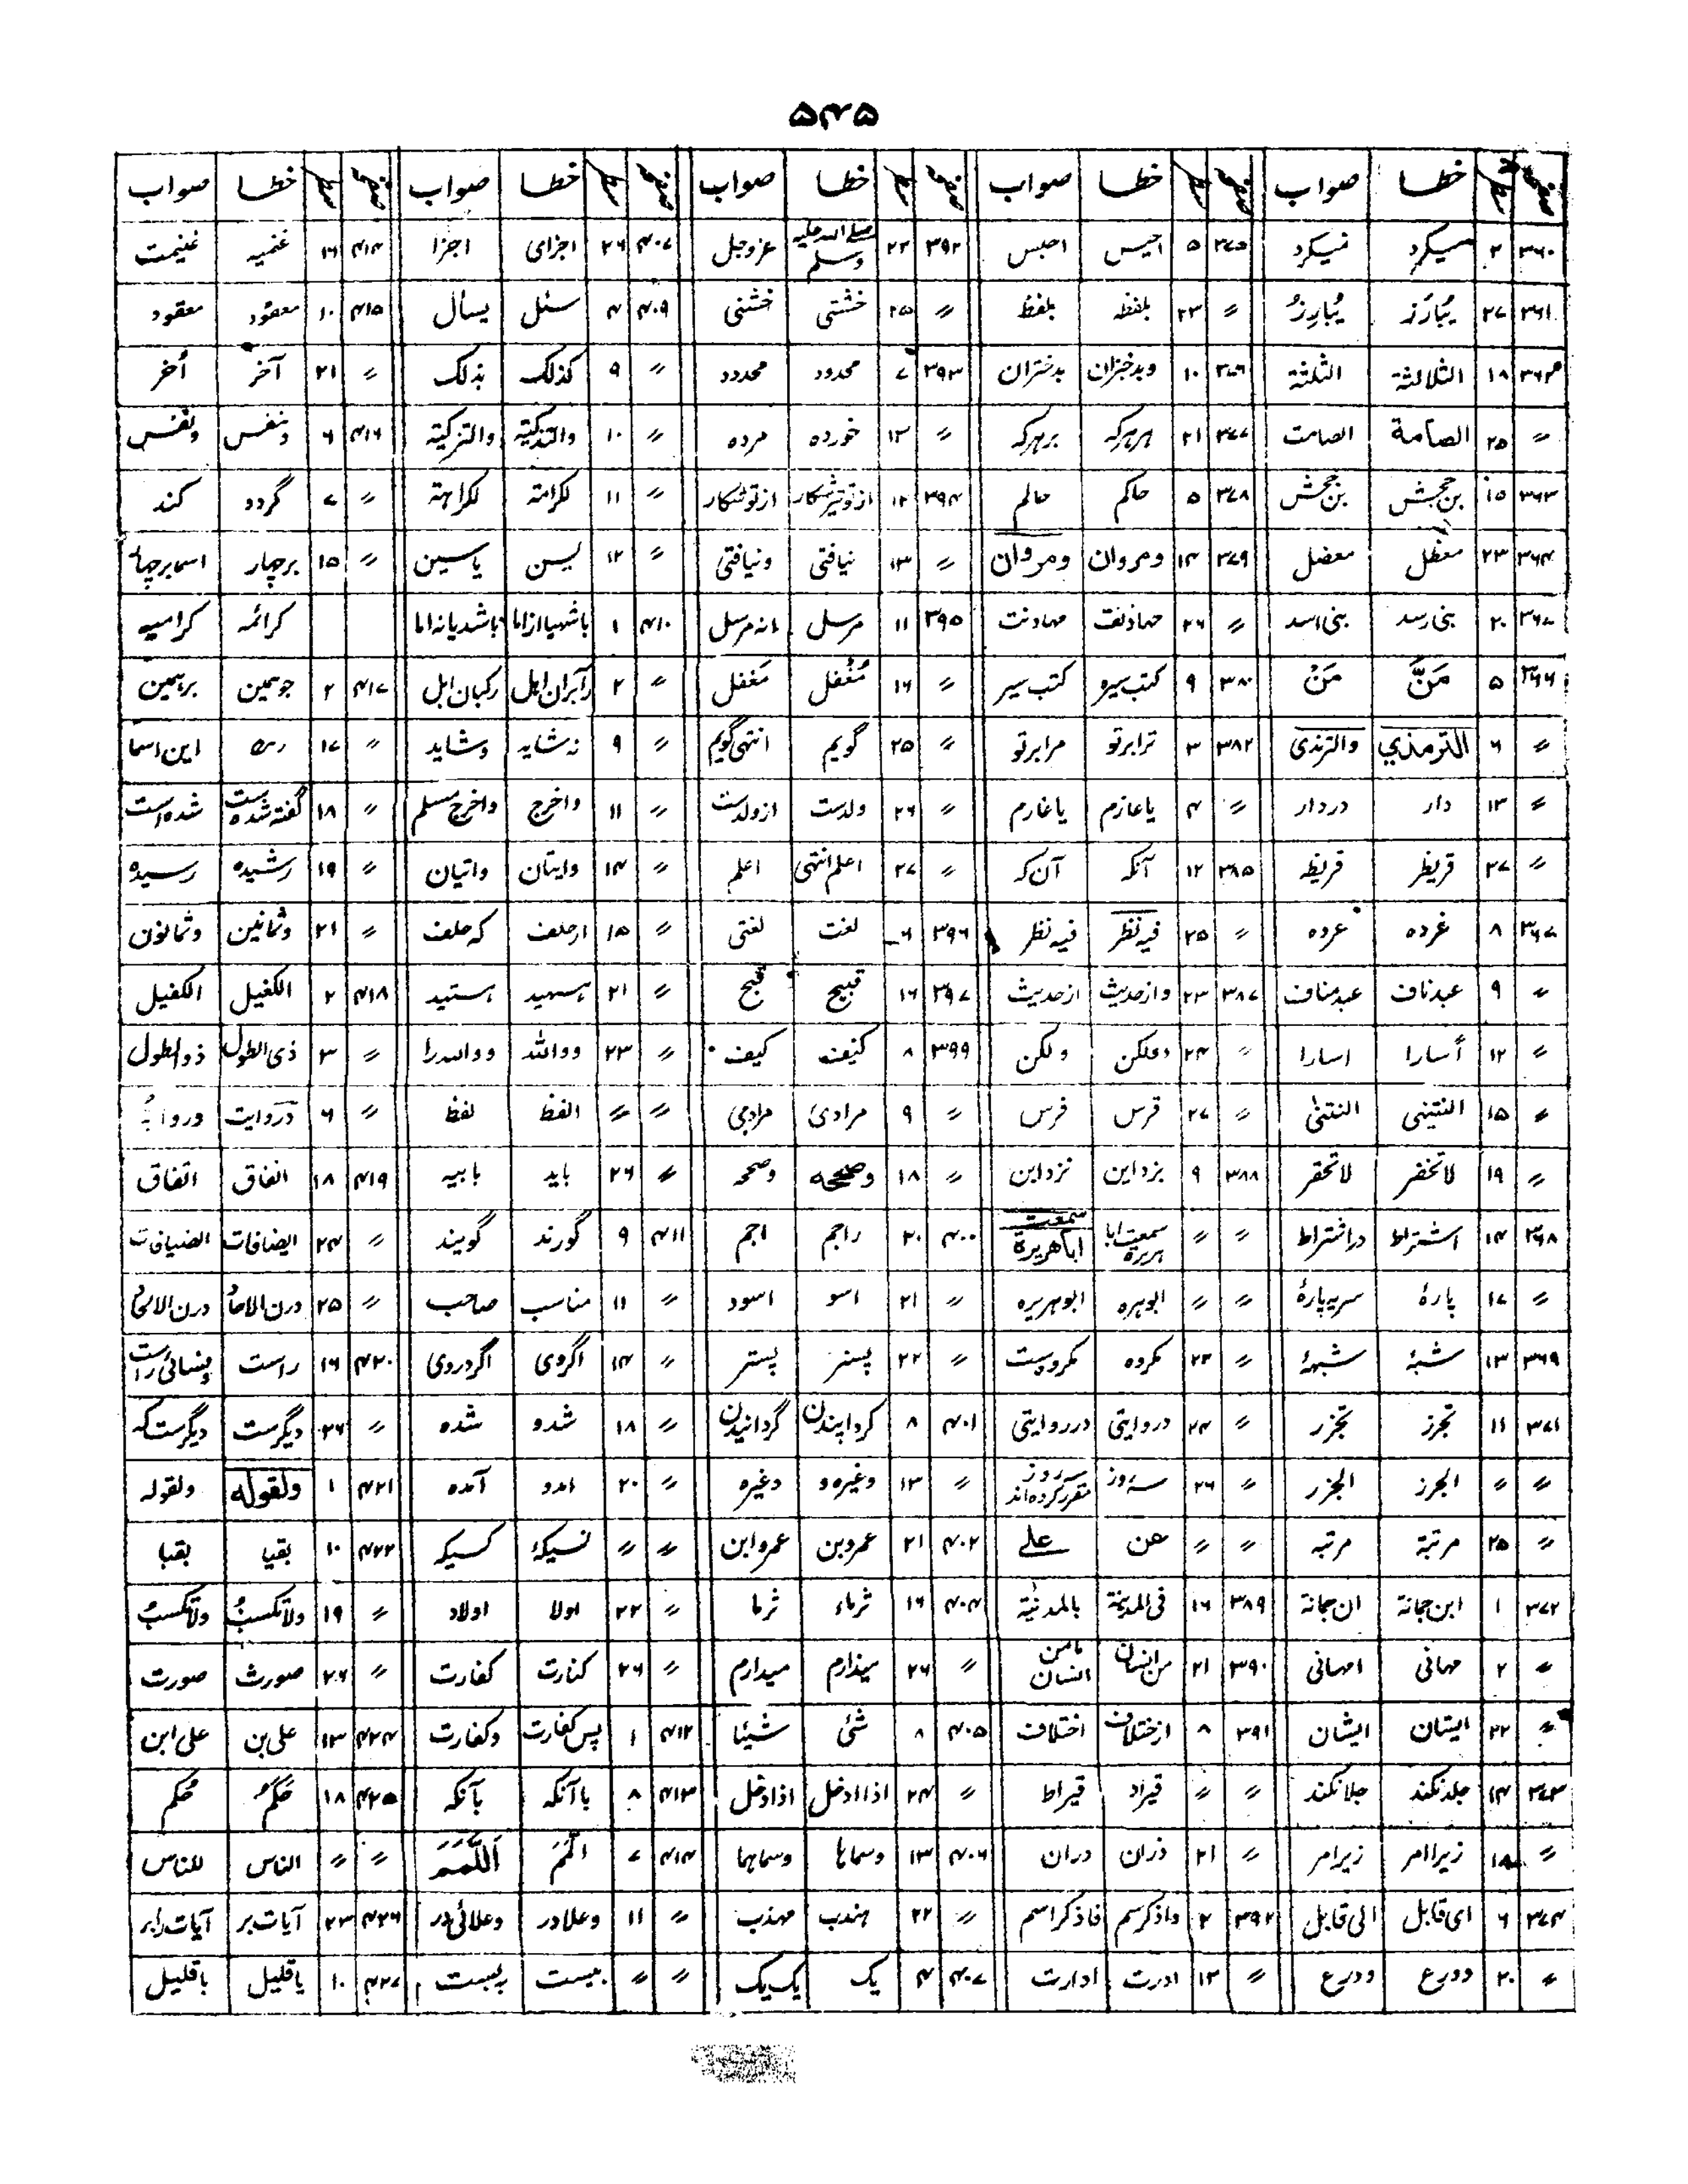 ۵۴۵
صفحه سطر خطا صواب صفحه سطر خطا صواب صفحه سطر خطا صواب صفحه سطر خطا صواب صفحه سطر خطا صواب
۳۶۰ ۲ میکرد نمیکرد ۳۷۵ ۵ احیس احبس ۳۹۲ ۲۳ صلے اللہ علیہ وسلم عزوجل ۴۰۷ ۲۶ اجزای اجزا ۴۱۴ ۱۶ غنمیه غنیمت
۳۶۱ ۲۷ یُبَارَزَ یُبارِزُ 〃 ۲۳ بلفظه بلفظ 〃 ۲۵ خشتی خشنی ۴۰۹ ۴ سئل یسأل ۴۱۵ ۱۰ معقود معقود
۳۶۲ ۱۸ الثلاثة الثلثة ۳۷۶ ۱۰ وبدختران بدختران ۳۹۳ ۷ محدود محدود 〃 ۹ کذلک بذلک 〃 ۲۱ آخر اُخر
〃 ۲۵ الصامة الصامت ۳۷۷ ۲۱ ہرہرکہ برہرکہ 〃 ۱۳ خورده مرده 〃 ۱۰ والتذکیة والتزکیة ۴۱۶ ۶ ونفس ونفس
۳۶۳ ۱۵ بن جحش بن جحش ۳۷۸ ۵ حاکم عالم ۳۹۴ ۱۲ 〃 ۱۱ لکرامة لکراہة 〃 ۷ گردد کند
۳۶۴ ۲۳ مغفل معضل ۳۷۹ ۱۴ ومروان ومروان 〃 ۱۳ نیافتی ونیافتی 〃 ۱۲ یسن یاسین 〃 ۱۵ برچار
۲۰ بنی رسد بنی اسد 〃 ۲۶ مہادنت ۳۹۵ ۱۱ مرسل انہ مرسل ۴۱۰ ۱ باشدیا نہ اما کرائمہ کرامیہ
۳۶۶ ۵ مَنَّ مَنْ ۳۸۰ ۹ کتب سیرہ کتب سیر 〃 ۱۶ مُغْفل مَغْفل 〃 ۲ رکبان ابل ۴۱۷ ۲ جوہمین برہمین
〃 ۶ الترمذي والترمذی ۳۸۲ ۳ ترابرتو مرابرتو 〃 ۲۵ گویم انتہی گویم 〃 ۹ نہ شاید وشاید 〃 ۱۷ این اسما
〃 ۱۳ دار دردار 〃 ۴ یا عازم یا غارم 〃 ۲۶ ولدست ازولدست 〃 ۱۱ واخرج واخرج مسلم 〃 ۱۸ گفتہ شدہ است شدہ است
〃 ۲۷ قریظ قریظہ ۳۸۵ ۱۲ آنکہ آن کہ 〃 ۲۷ اعلم انتہی اعلم 〃 ۱۴ وایتان واتیان 〃 ۱۹ رشیدہ رسیدہ
۳۶۷ ۸ غردہ عردہ 〃 ۲۵ فیہ نظر فیہ نظر ۳۹۶ ۶ لغت لغتی 〃 ۱۵ ازحلف کہ حلف 〃 ۲۱ وثمانین وثمانون
〃 ۹ عبدناف عبدمناف ۳۸۷ ۲۳ وازحدیث ازحدیث ۳۹۷ ۱۶ قبیح قبح 〃 ۲۱ ہستید ۴۱۸ ۲ الکغیل الکفیل
〃 ۱۲ أسارا اسارا 〃 ۲۴ ولکن ۳۹۹ ۸ کنیف کیف 〃 ۲۳ وواللہ وواللہ را 〃 ۳ ذی الطول ذوالطول
〃 ۱۵ النتینی النتنی 〃 ۲۷ قرس فرس 〃 ۹ مرادی مرادی 〃 〃 الفظ لفظ 〃 ۶ درروایت
〃 ۱۹ لاتخفر لاتحقر ۳۸۸ ۹ بزداین نزداین 〃 ۱۸ وصححہ وصحہ 〃 ۲۶ باید بابیہ ۴۱۹ ۱۸ انفاق اتفاق
۳۶۸ ۱۴ اشتراط دراشتراط 〃 〃 سمعت ابا ہریرہ سمعت اباهریرة ۴۰۰ ۲۰ راجم اجم ۴۱۱ ۹ گورند گویند 〃 ۲۴ الضافات الضیافات
〃 ۱۷ پارۂ سریہ پارۂ 〃 〃 ابوہرہ ابوہریرہ 〃 ۲۱ اسو اسود 〃 ۱۱ مناسب صاحب 〃 ۲۵
۳۶۹ ۱۳ شبۂ شبہۂ 〃 ۲۳ مکردہ مکروہست 〃 ۲۲ پسنر پستر 〃 ۱۴ اگروی اگردروی ۴۲۰ ۱۶ راست
۳۷۱ ۱۱ تجرز تجزر 〃 ۲۴ دروایتی درروایتی ۴۰۱ ۸ گردانیدن 〃 ۱۸ شدو شدہ 〃 ۲۶ دیگرست دیگرست کہ
〃 〃 الجرز الجزر 〃 ۲۶ سہ روز سہ روز مقررکردہ اند 〃 ۱۳ وغیرہ و وغیرہ 〃 ۲۰ امدو آمدہ ۴۲۱ ۱ ولقولہ ولقولہ
〃 ۲۵ مرتبة مرتبہ 〃 〃 عن علے ۴۰۲ ۲۱ عمروبن عمروابن 〃 〃 کسیکہ ۴۲۲ ۱۰ بقیا بقیا
۳۷۲ ۱ ابن جمانة ان جمانة ۳۸۹ ۱۶ فی المدینة بالمدینة ۴۰۴ ۱۶ ثرماء ثرما 〃 ۲۲ اولا اولاد 〃 ۱۹ ولاتکسبُ ولاتکسبُ
〃 ۲ مہانی امہانی ۳۹۰ ۲۱ 〃 ۲۶ میذارم میدارم 〃 ۲۶ کنارت کفارت 〃 ۲۶ صورث صورت
〃 ۲۲ ایتان ایشان ۳۹۱ ۸ ازختلاف اختلاف ۴۰۵ ۸ شئ شیئا ۴۱۲ ۱ پس کفارت وکفارت ۴۲۴ ۱۳ علی بن علی ابن
۳۷۳ ۱۴ جلدنکند جلانکند 〃 〃 قیراد قیراط 〃 ۲۴ اذا ادخل اذادخل ۴۱۳ ۸ باآنکہ بآنکہ ۴۲۵ ۱۸ حَکَم حُکم
〃 ۱۸ زیراامر زیرامر 〃 ۲۱ ذران دران ۴۰۶ ۱۳ وسماہا ۴۱۴ ۷ اَللّٰهُمَّ 〃 〃 الناس للناس
۳۷۴ ۶ ای قابل الی قابل ۳۹۲ ۲ واذکرسم فاذکراسم 〃 ۲۲ ہندب مہذب 〃 ۱۱ وعلادر وعلائی در ۴۲۶ ۲۳ آیات بر آیات رابر
〃 ۲۰ دورع وورع 〃 ۱۳ ادرت ادارت ۴۰۷ ۴ یک یک یک 〃 〃 بیست پیست ۴۲۷ ۱۰ یاقلیل باقلیل